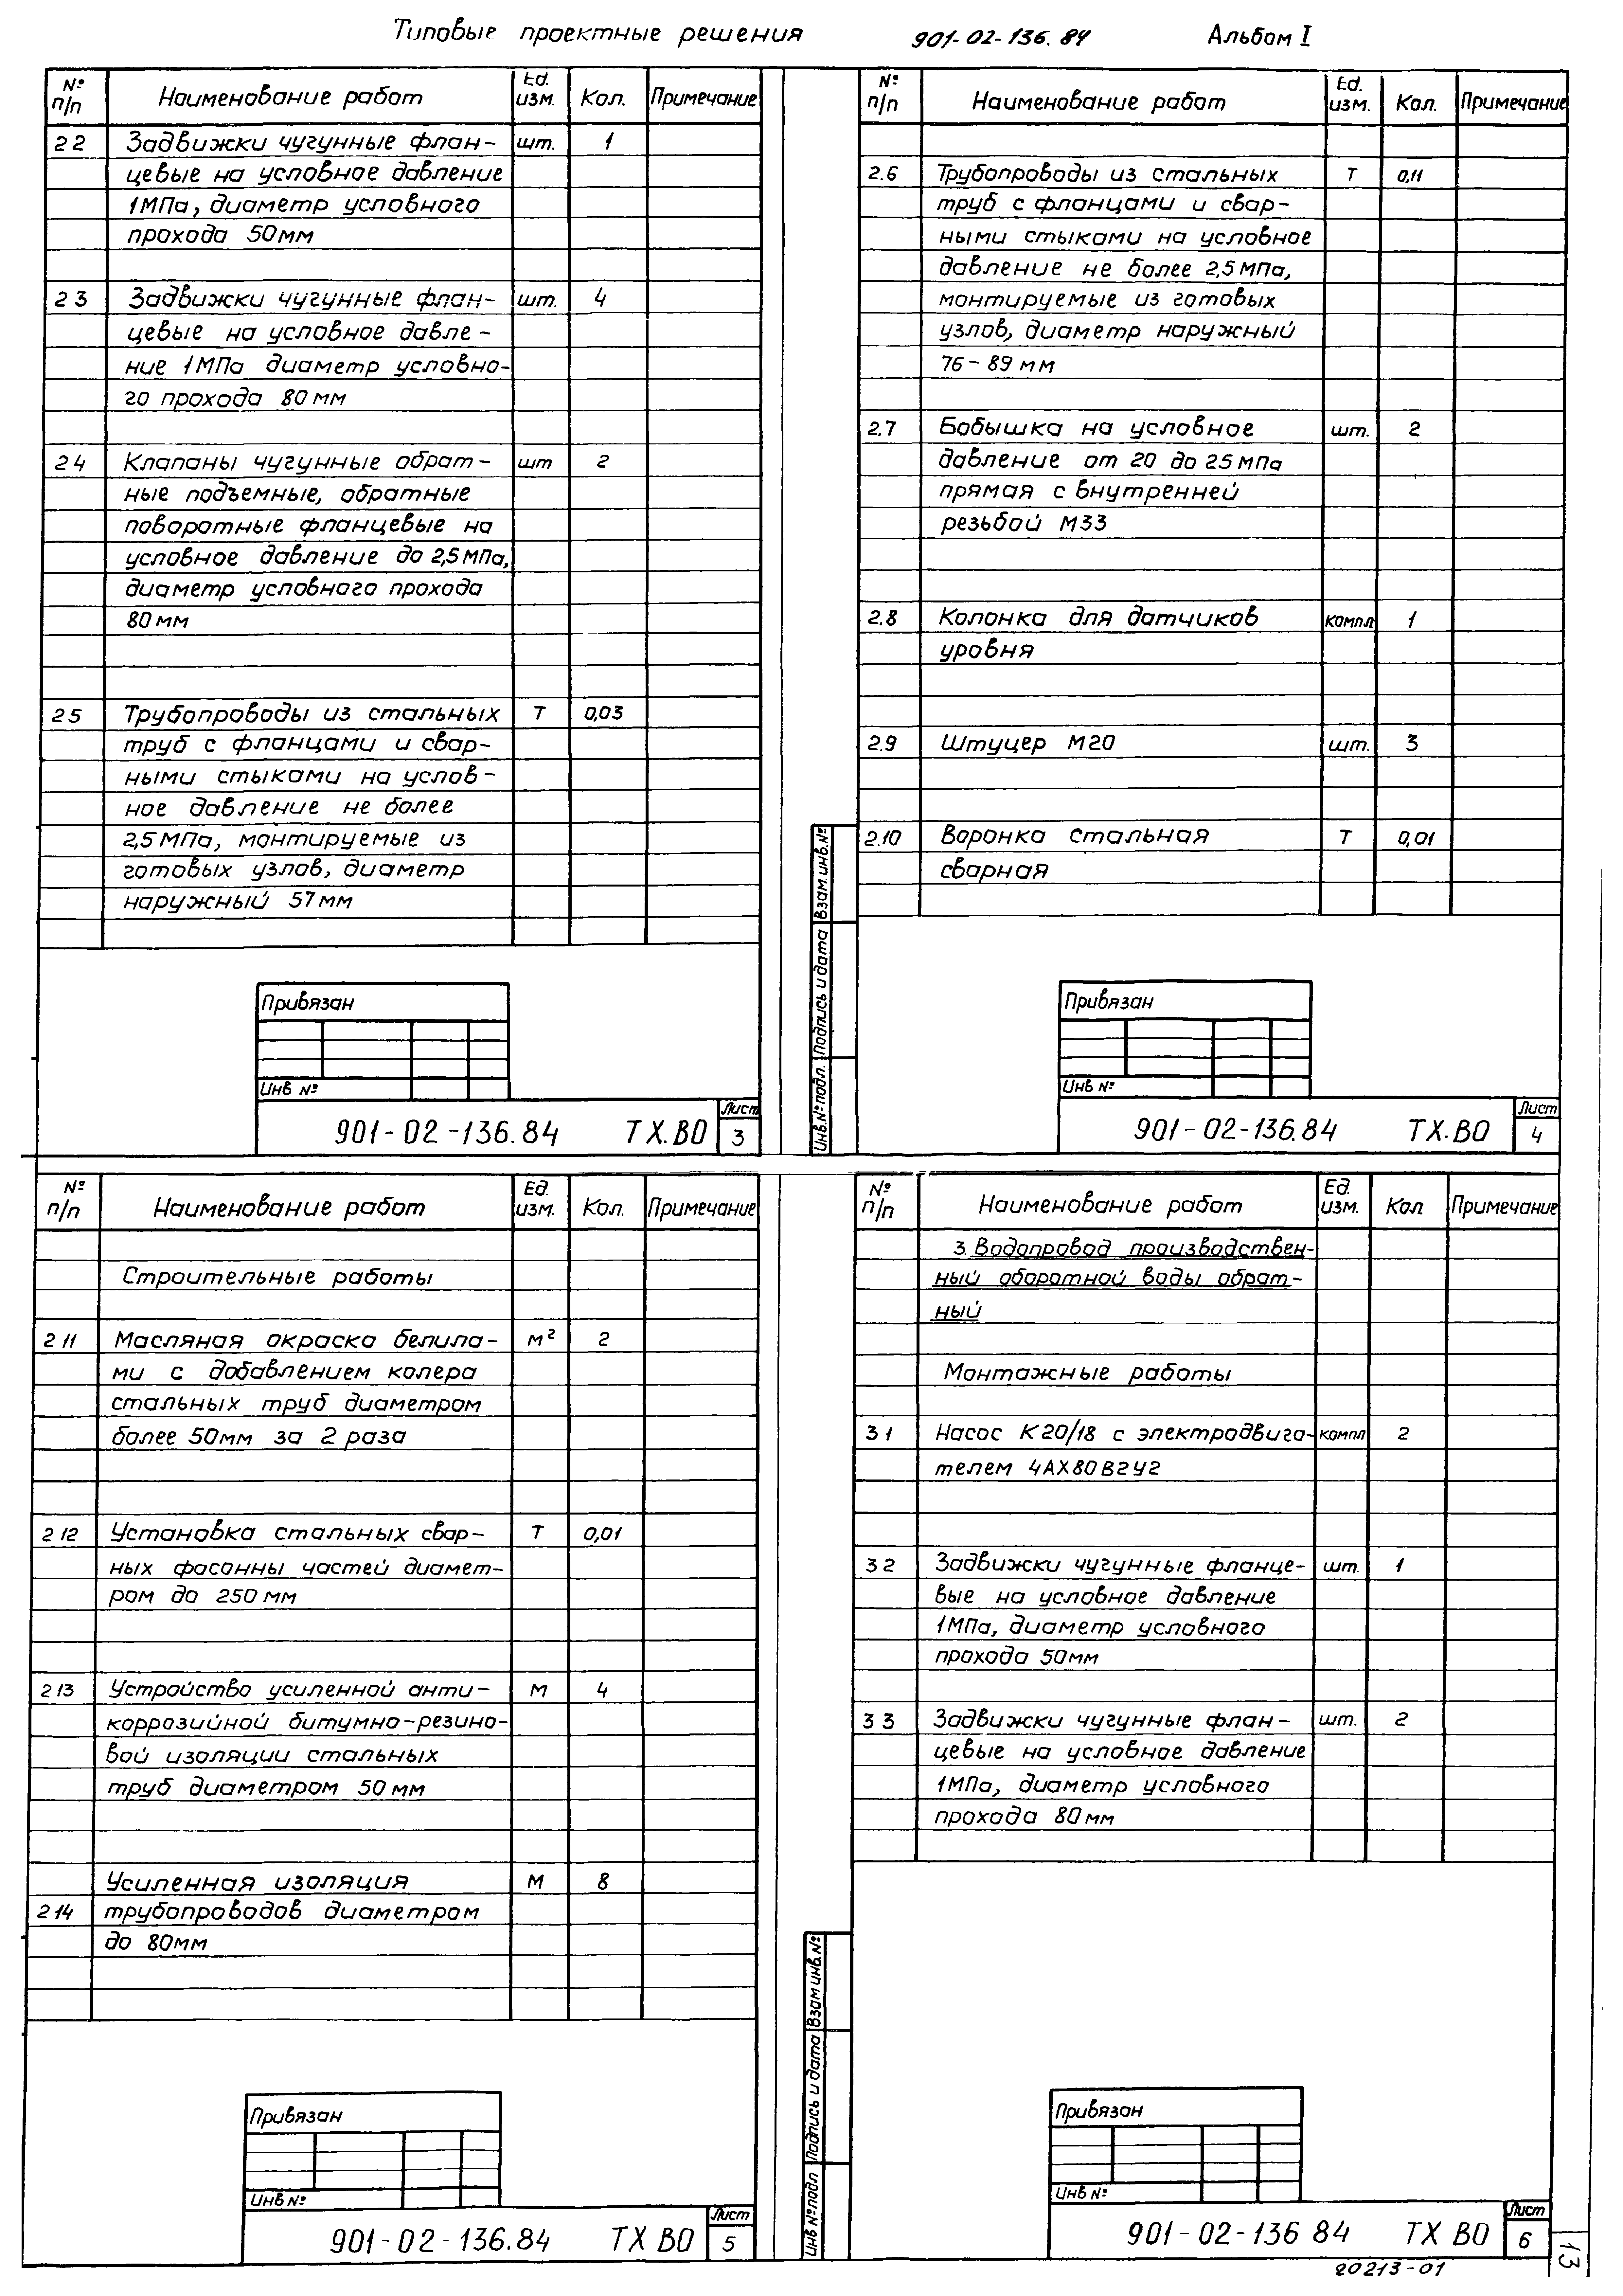 Типовые проектные решения 901-02-136.84 Альбом I
№ п/п Наименование работ Ед. изм. Кол. Примечание
22 Задвижки чугунные флан- шт. 1
цевые на условное давление
1МПа, диаметр условного
прохода 50мм
23 Задвижки чугунные флан- шт. 4
цевые на условное давле-
ние 1МПа диаметр условно-
го прохода 80мм
24 Клапаны чугунные обрат- шт 2
ные подъемные, обратные
поворотные фланцевые на
условное давление до 2,5МПа,
диаметр условного прохода
80мм
25 Трубопроводы из стальных Т 0,03
труб с фланцами и свар-
ными стыками на услов-
ное давление не более
2,5МПа, монтируемые из
готовых узлов, диаметр
наружный 57мм
Привязан
Инв №
901-02-136.84 ТХ.ВО Лист 3
№ п/п Наименование работ Ед. изм. Кол. Примечание
2.6 Трубопроводы из стальных Т 0,11
труб с фланцами и свар-
ными стыками на условное
давление не более 2,5МПа,
монтируемые из готовых
узлов, диаметр наружный
76-89мм
2.7 Бобышка на условное шт. 2
давление от 20 до 25МПа
прямая с внутренней
резьбой М33
2.8 Колонка для датчиков компл 1
уровня
2.9 Штуцер М20 шт. 3
2.10 Воронка стальная Т 0,01
сварная
Взам.инв.№
Подпись и дата
Инв.№подл.
Привязан
Инв №
901-02-136.84 ТХ.ВО Лист 4
№ п/п Наименование работ Ед. изм. Кол. Примечание
Строительные работы
211 Масляная окраска белила- м² 2
ми с добавлением колера
стальных труб диаметром
более 50мм за 2 раза
212 Установка стальных свар- Т 0,01
ных фасонны частей диамет-
ром до 250мм
213 Устройство усиленной анти- М 4
коррозийной битумно-резино-
вой изоляции стальных
труб диаметром 50мм
Усиленная изоляция М 8
214 трубопроводов диаметром
до 80мм
Привязан
Инв №
901-02-136.84 ТХ ВО Лист 5
№ п/п Наименование работ Ед. изм. Кол Примечание
3 Водопровод производствен-
ный оборотной воды обрат-
ный
Монтажные работы
31 Насос К20/18 с электродвига- компл 2
телем 4АХ80В2У2
32 Задвижки чугунные фланце- шт. 1
вые на условное давление
1МПа, диаметр условного
прохода 50мм
33 Задвижки чугунные флан- шт. 2
цевые на условное давление
1МПа, диаметр условного
прохода 80мм
Взам инв.№
Подпись и дата
Инв №подл
Привязан
Инв №
901-02-136 84 ТХ ВО Лист 6
13
20213-01